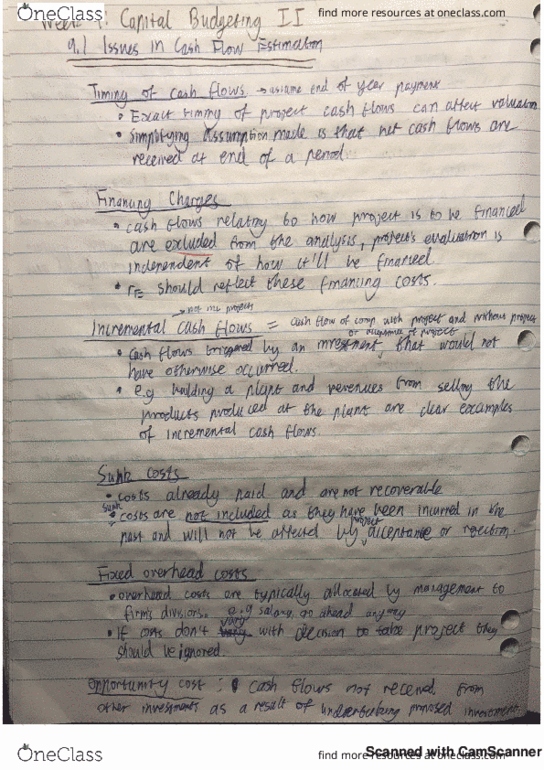 OneClass
find more resources at oneclass.com
Week 9: Capital Budgeting II
9.1 Issues in Cash Flow Estimation
Timing of cash flows → assume end of year payment
• Exact timing of project cash flows can affect valuation
• Simplifying Assumption made is that net cash flows are
received at end of a period
Financing Charges
• cash flows relating to how project is to be financed
are excluded from the analysis, project's evaluation is
independent of how it'll be financed
• should reflect these financing costs.
Incremental Cash flows = cash flow of comp with project and without project
• Cash flows triggered by an investment, that would not
have otherwise occurred.
• e.g building a plant and revenues from selling the
products produced at the plant are clear examples
of incremental cash flows.
Sunk costs
• costs already paid and are not recoverable
• sunk costs are not included as they have been incurred in the
past and will not be affected by project acceptance or rejection.
Fixed overhead costs
• overhead costs are typically allocated by management to
firms divisions. e.g salary, go ahead anyway
• If costs don't vary with decision to take project they
should be ignored.
Opportunity cost : cash flows not received from
other investments as a result of undertaking proposed investment.
OneClass
find more resources at oneclass.com
Scanned with CamScanner